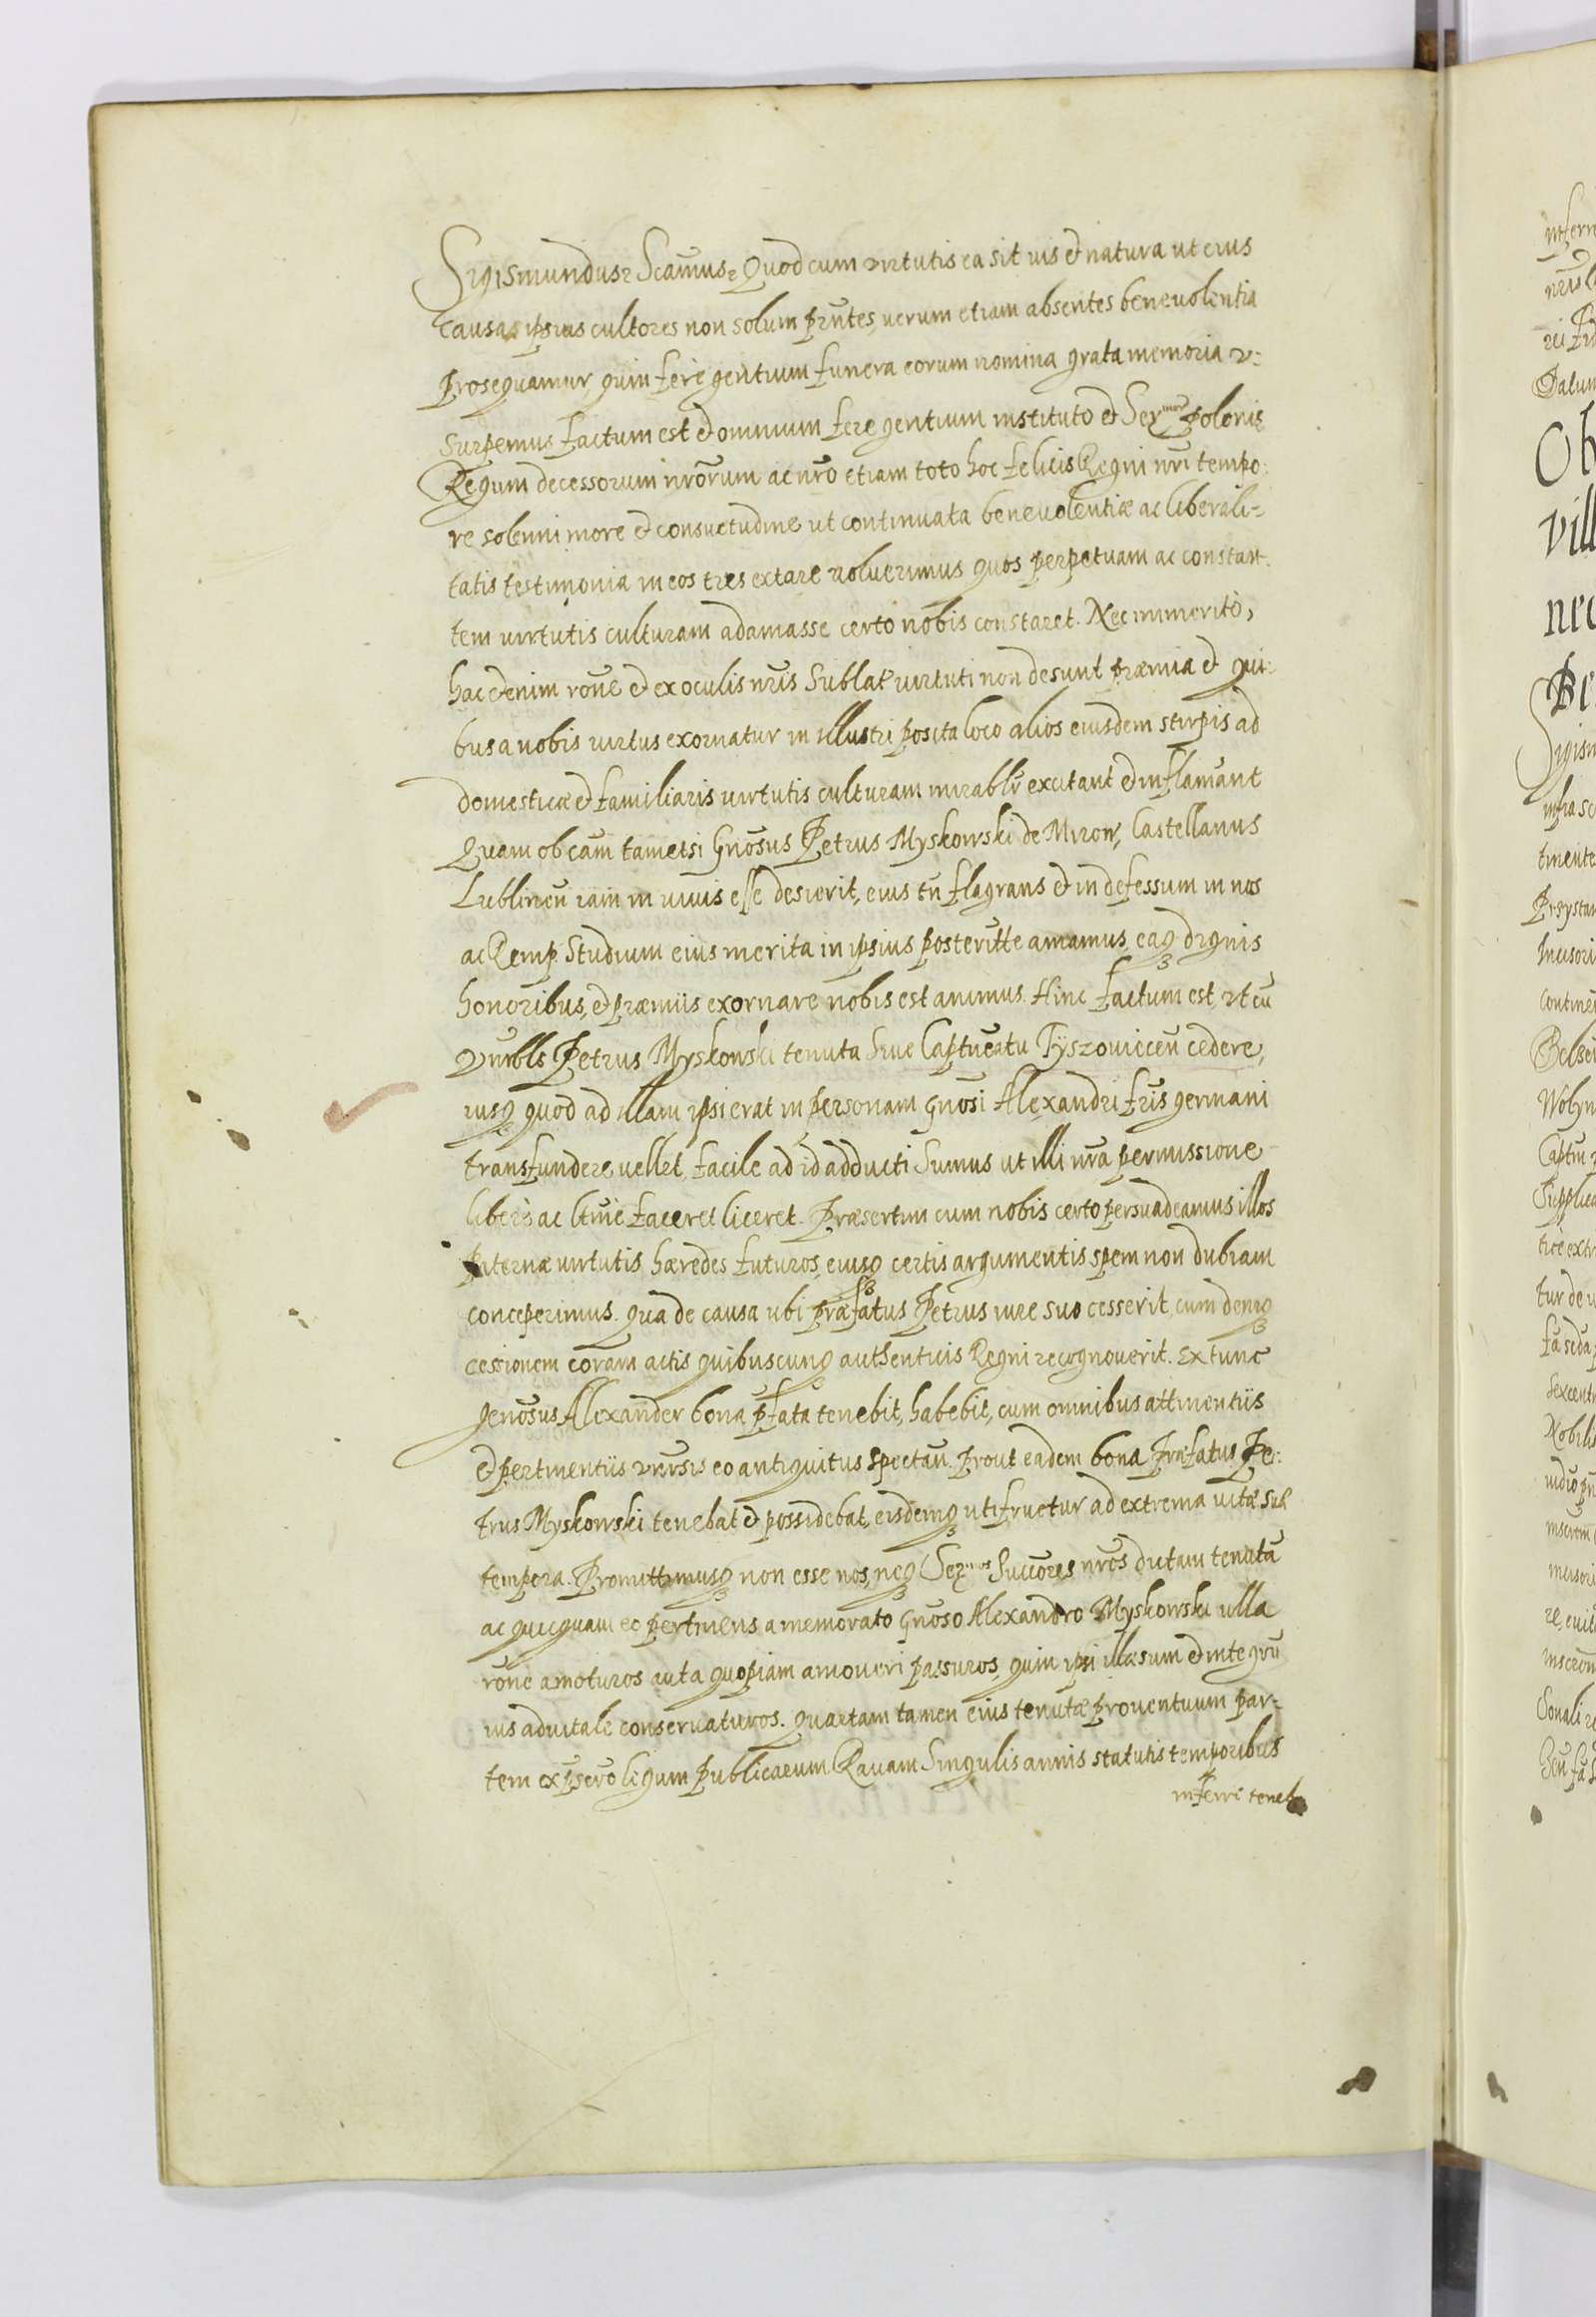 Sigismundus: Scamus: Quod cum virtutis ea sit vis et natura ut eius
causa ipsius cultores non solum prntes, verum etiam absentes benevolentia
prosequamur, quin fere gentium funera eorum nomina grata memoria v:
surpemus factum est et omnium fere gentium instituto et Ser Poloniæ
Regum decessorum nrorum ac nro etiam toto hoc felicis Regni nri tempo:
re solenni more et consuetudine ut continuata benevolentiæ ac liberali=
tatis testimonia in eos tres extare voluerimus quos perpetuam ac constan
tem virtutis culturam adamasse certo nobis constaret. Nec immeritò,
hac etenim rone et ex oculis nris sublatæ virtuti non desunt præmia et qui:
bus a nobis virtus exornatur in illustri posita loco alios eiusdem stirpis ad
domesticæ et familiaris virtutis culturam mirablr excitant et inflamant
Quam ob cam tametsi Gnosus Petrus Myskowski de Mirow, Castellanus
Lublinen iam in vivis esse desierit, eius tn flagrans et indefessum in nos
ac Remp. studium eius merita in ipsius posteritte amamus, eaq dignis
honoribus, et præmiis exornare nobis est animus. Hinc factum est, ut cu
Vrübls Petrus Myskowski tenuta sive Captneatu Tyszoviecen cedere,
iusq quod ad illam ipsi erat in personam Gnosi Alexandri fris germani
transfundere vellet, facile ad id adducti sumus ut illi nra permissione
liberè ac ltmè facere liceret. Præsertim cum nobis certo persuadeamus illos
paternæ virtutis hæredes futuros, eiusq certis argumentis spem non dubiam
conceperimus. Qua de causa ubi præfatus Petrus iure suo cesserit, cum demq
cessionem coram actis quibuscunq authenticis Regni recognoverit. Ex tunc
generosus Alexander bona pfata tenebit, habebit, cum omnibus attinentiis
et pertinentiis vnrsis eo antiquitus spectan. prout eadem bona præfatus Pe:
trus Myskowski tenebat et possidebat, eisdemq uti fruetur ad extrema vitæ suæ
tempora. Promittimusq non esse nos, neq Ser Succores nros dictam tenuta
ac quicquam eo pertinens a memorato Gnoso Alexandro Myskowski ulla
rone amoturos aut a quopiam amoveri passuros, quin ipsi illæsum et integru
ius advitale conservaturos. Quartam tamen eius tenutæ proventuum par=
tem ex pscro ligum publicarum Ravam singulis annis statutis temporibus
inferri teneb